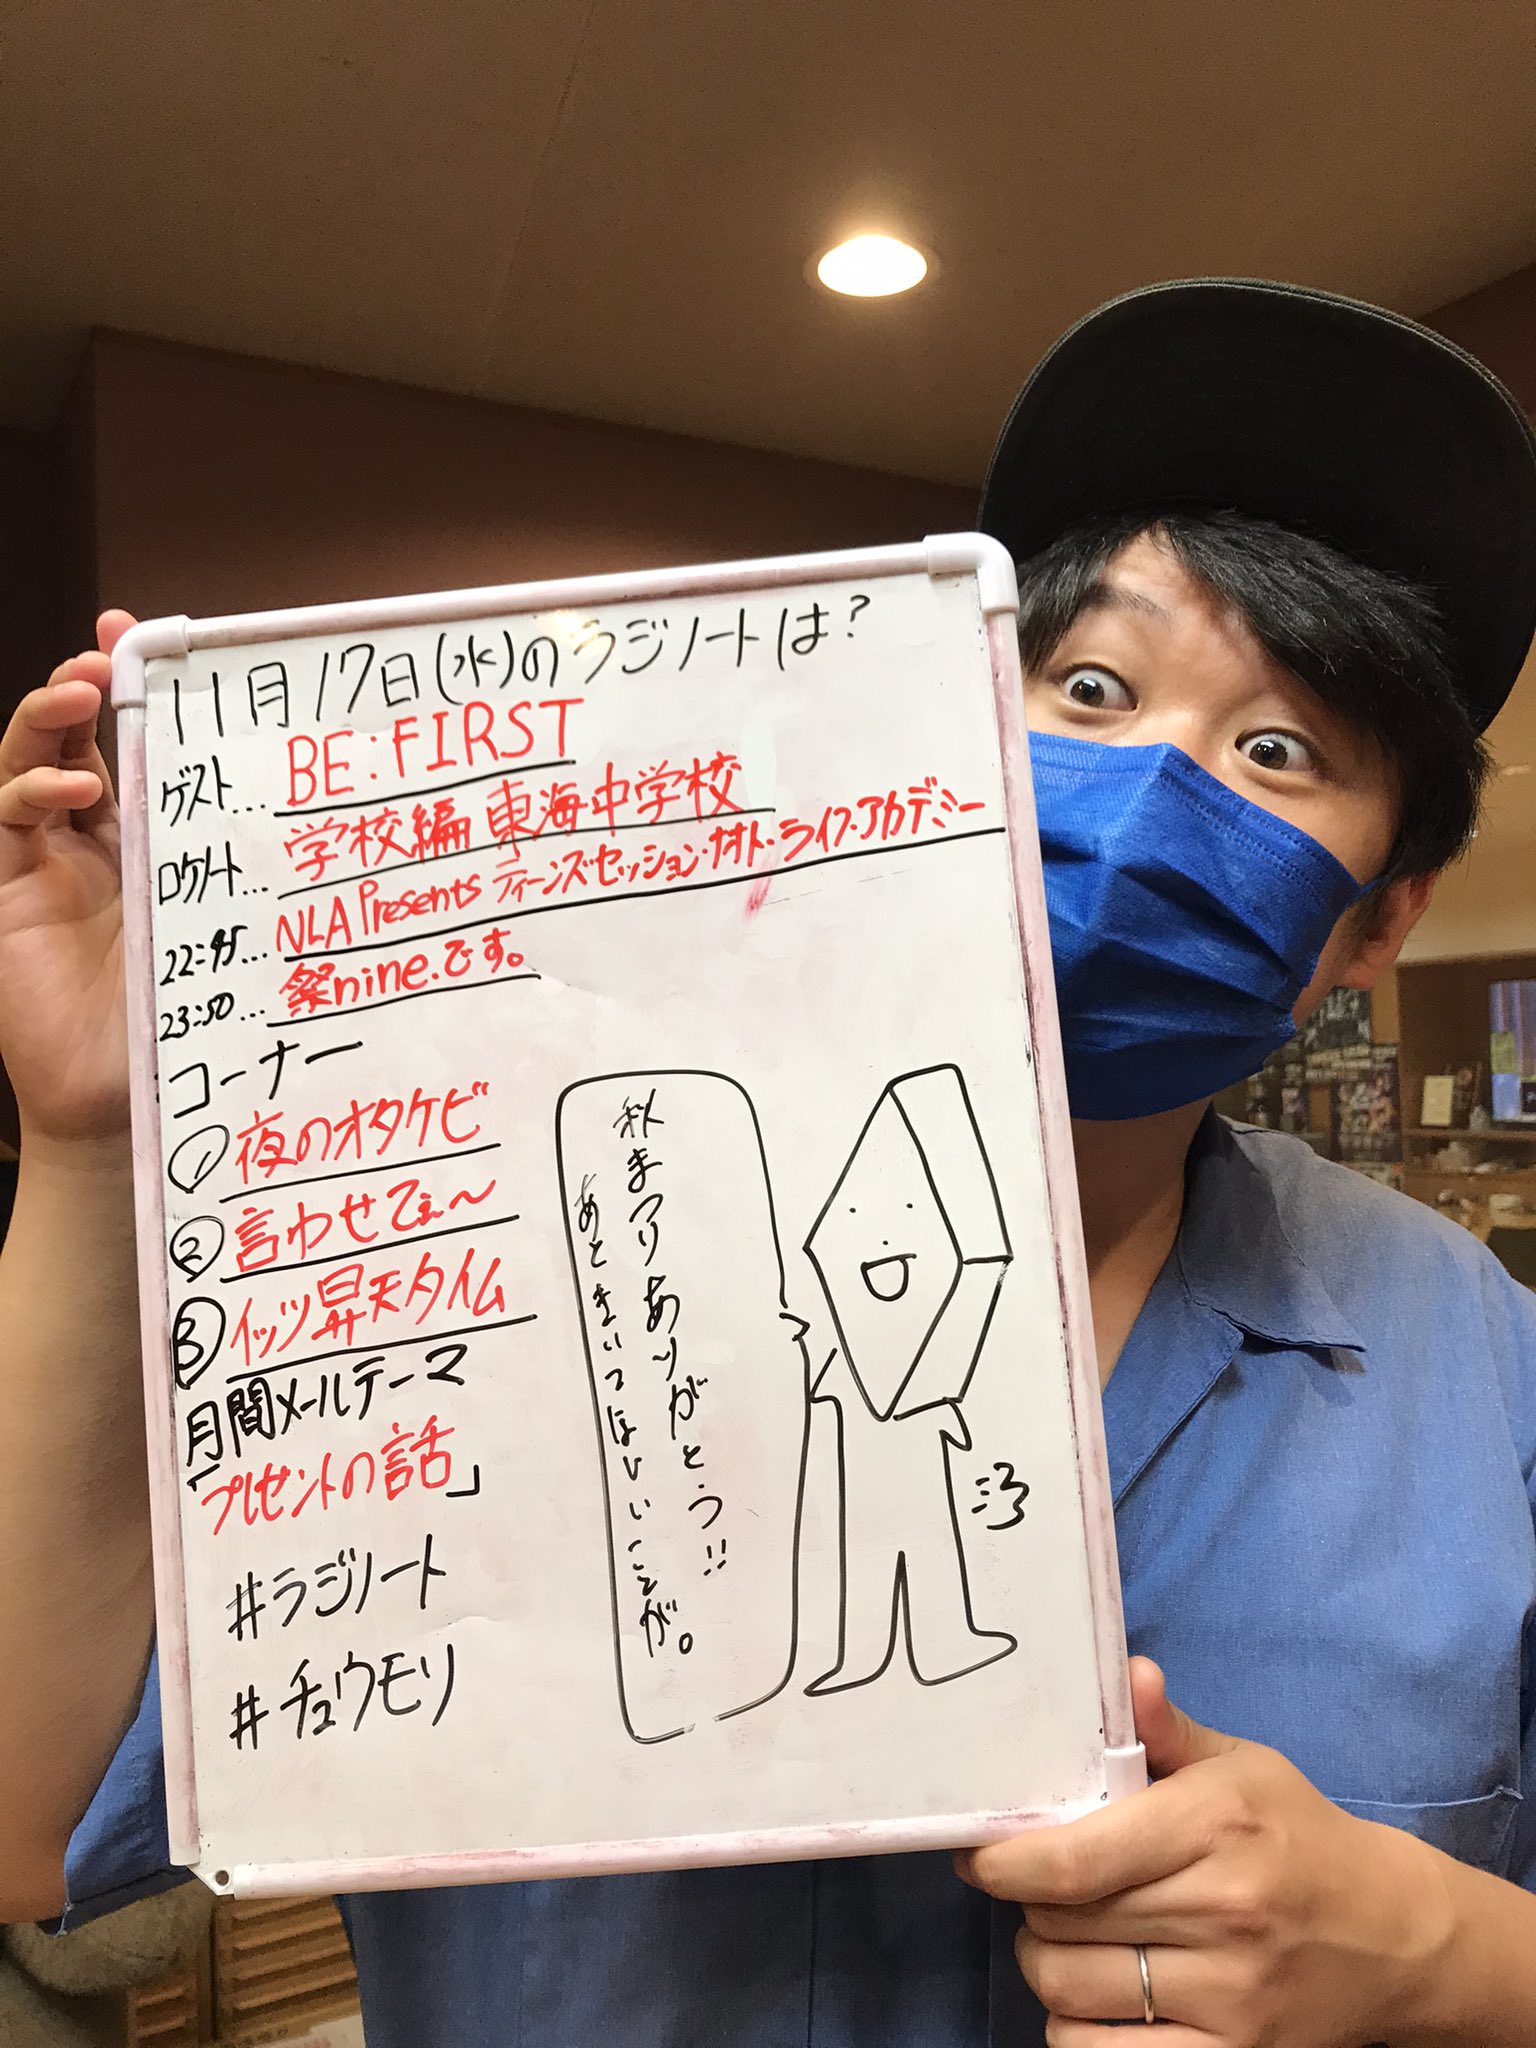 11月17日(水)のラジノートは?
ゲスト… BE:FIRST
ロケノート… 学校編 東海中学校
22:45… NLA Presents ティーンズセッション・ナオト・ライフ・アカデミー
23:50… 祭nine.です。
コーナー
① 夜のオタケビ
② 言わせてぇ〜
③ イッツ昇天タイム
月間メールテーマ
「プレゼントの話」
#ラジノート
#チュウモリ
秋まつりありがとう!!
あときいてほしいことが。